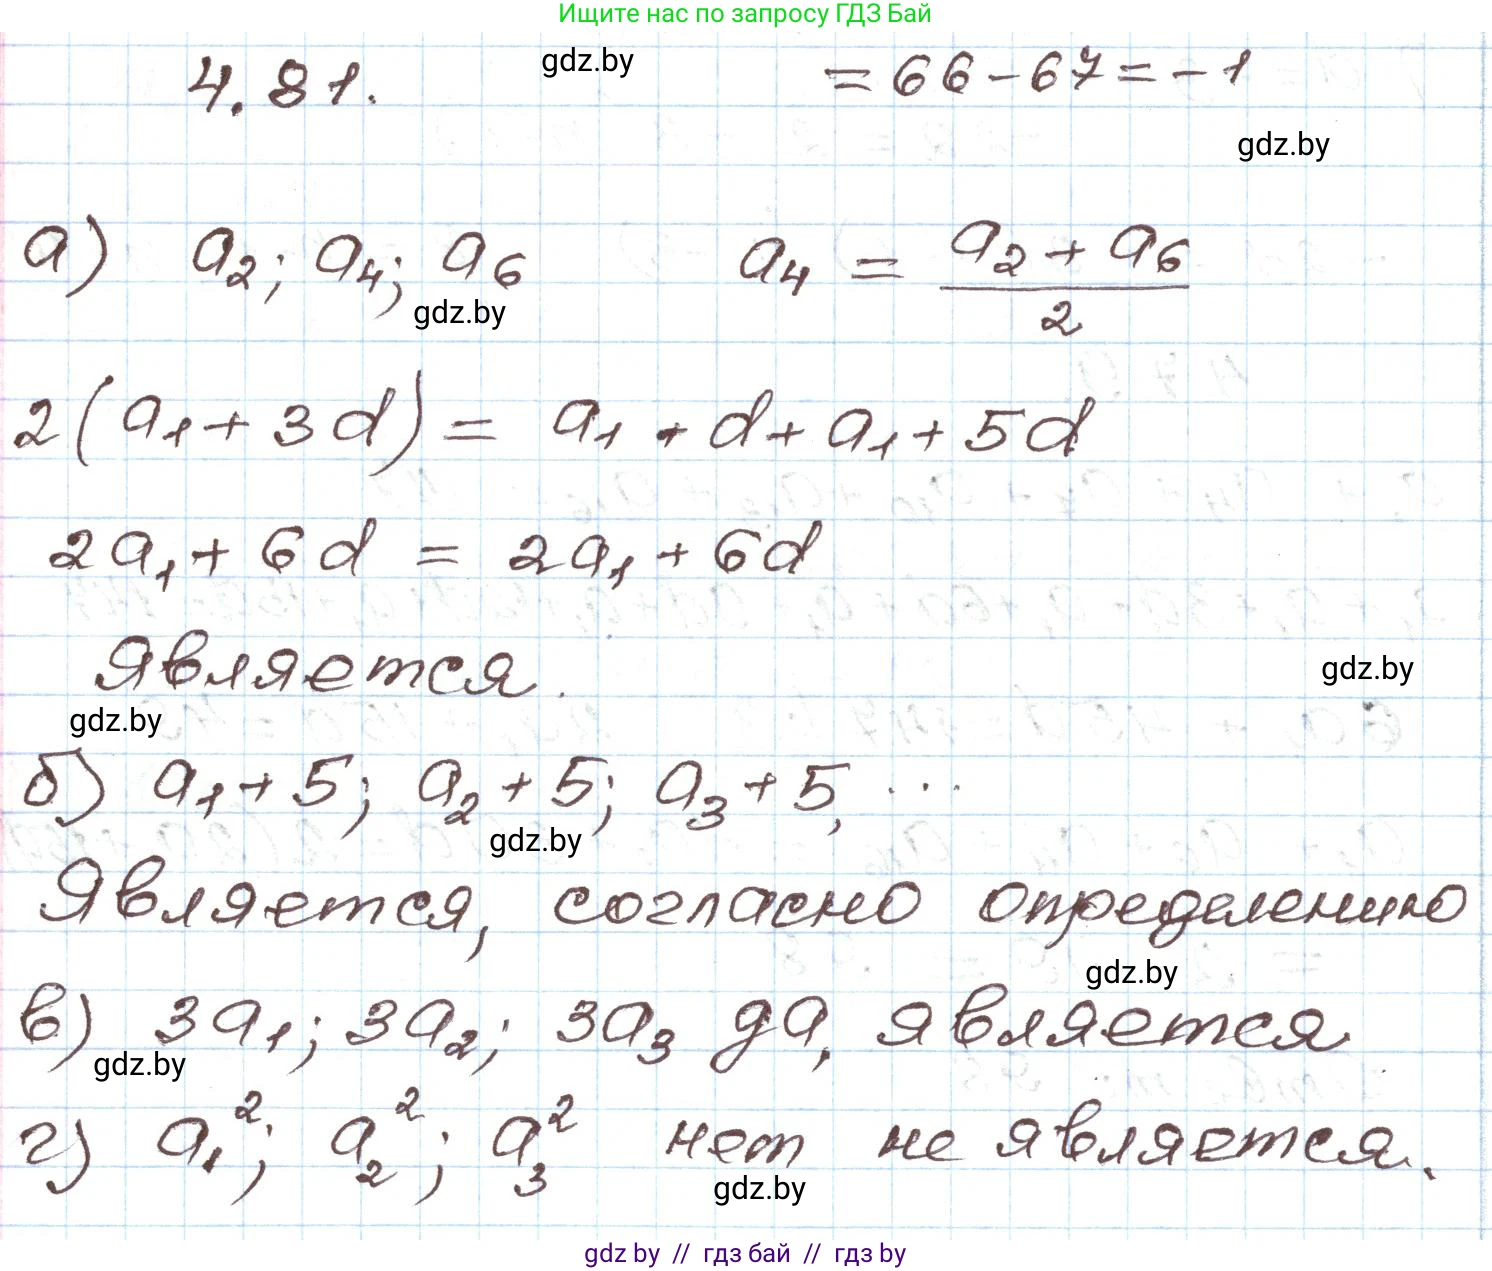 Ищите нас по запросу ГДЗ Бай
4.81. gdz.by = 66 - 67 = -1
gdz.by
а) a₂; a₄; a₆ a₄ = (a₂ + a₆)/2
gdz.by
2(a₁ + 3d) = a₁ + d + a₁ + 5d
2a₁ + 6d = 2a₁ + 6d
Является.
gdz.by
gdz.by
б) a₁ + 5; a₂ + 5; a₃ + 5, ...
gdz.by
Является, согласно определению
gdz.by
в) 3a₁; 3a₂; 3a₃ да, является
gdz.by
г) a₁²; a₂²; a₃² нет не является.
gdz.by
gdz by // гдз бай // гдз by